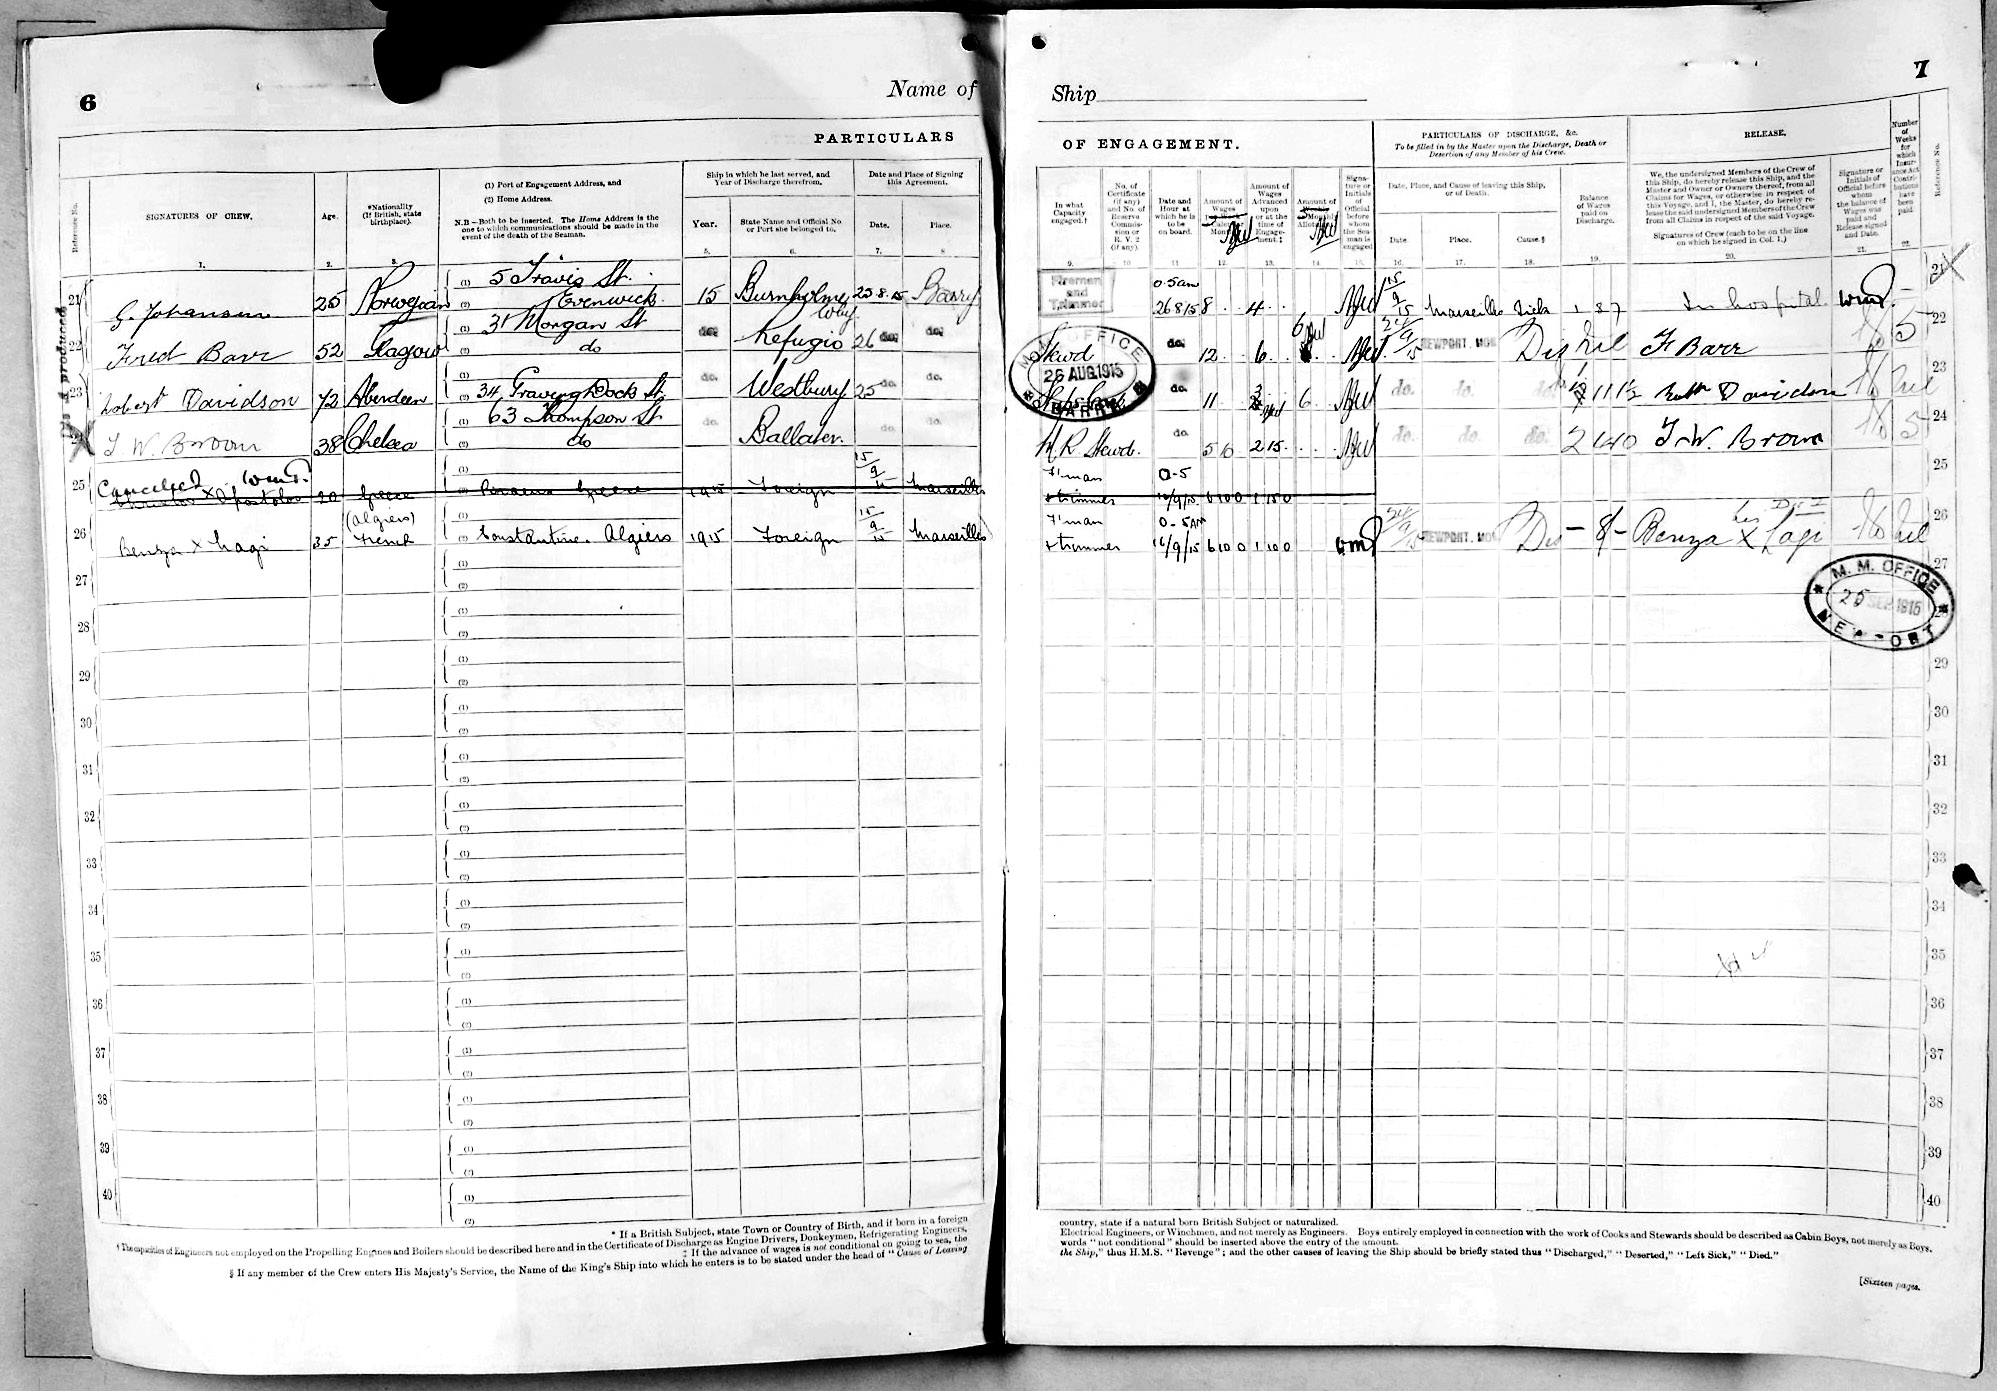 6
Name of
PARTICULARS
Reference No.
SIGNATURES OF CREW.
Age.
*Nationality
(If British, state
birthplace).
(1) Port of Engagement Address, and
(2) Home Address.
N.B.—Both to be inserted. The Home Address is the
one to which communications should be made in the
event of the death of the Seaman.
Ship in which he last served, and
Year of Discharge therefrom.
Year.
State Name and Official No
or Port she belonged to.
Date and Place of Signing
this Agreement.
Date.
Place.
1.
2.
3.
5.
6.
7.
8
21 G. Johansen 25 Norwegian (1) 5 Travis St.
(2) 15 Burnholme Wby 25.8.15 Barry
22 Fred Barr 52 Glasgow (1) 31 Morgan St
(2) do do. Refugio 26 do. do.
23 Robert Davidson 72 Aberdeen (1)
(2) 34 Graving Dock St do. Westbury 25 do. do.
24 T. W. Brown 38 Chelsea (1) 63 Thompson St
(2) do do. Ballater.
Cancelled
25 20 Greece (1)
(2) Greece 1915 Foreign 15/9/15 Marseilles
26 Benza x Lagi 35 (Algiers) French (1)
(2) Constantine Algiers 1915 Foreign 15/9/15 Marseilles
27 (1)
(2)
28 (1)
(2)
29 (1)
(2)
30 (1)
(2)
31 (1)
(2)
32 (1)
(2)
33 (1)
(2)
34 (1)
(2)
35 (1)
(2)
36 (1)
(2)
37 (1)
(2)
38 (1)
(2)
39 (1)
(2)
40 (1)
(2)
* If a British Subject, state Town or Country of Birth, and if born in a foreign
† The capacities of Engineers not employed on the Propelling Engines and Boilers should be described here and in the Certificate of Discharge as Engine Drivers, Donkeymen, Refrigerating Engineers,
‡ If the advance of wages is not conditional on going to sea, the
§ If any member of the Crew enters His Majesty's Service, the Name of the King's Ship into which he enters is to be stated under the head of "Cause of Leaving
7
Ship
OF ENGAGEMENT.
PARTICULARS OF DISCHARGE, &c.
To be filled in by the Master upon the Discharge, Death or
Desertion of any Member of his Crew.
RELEASE.
Number
of
Weeks
for
which
Insur-
ance Act
Contri-
butions
have
been
paid
Reference No.
In what
Capacity
engaged.†
No. of
Certificate
(if any)
and No. of
Reserve
Commis-
sion or
R. V. 2
(if any).
Date and
Hour at
which he is
to be
on board.
Amount of
Wages
Amount of
Wages
Advanced
upon
or at the
time of
Engage-
ment.‡
Amount of
Signa-
ture or
Initials
of
Official
before
whom
the Sea
man is
engaged
Date, Place, and Cause of leaving this Ship,
or of Death.
Date.
Place.
Cause.§
Balance
of Wages
paid on
Discharge.
We, the undersigned Members of the Crew of
this Ship, do hereby release this Ship, and the
Master and Owner or Owners thereof, from all
Claims for Wages, or otherwise in respect of
this Voyage, and I, the Master, do hereby re-
lease the said undersigned Members of the Crew
from all Claims in respect of the said Voyage.
Signatures of Crew (each to be on the line
on which he signed in Col. 1.)
Signature or
Initials of
Official before
whom
the balance of
Wages was
paid and
Release signed
and Date.
9.
10
11.
12.
13.
14
15.
16.
17.
18.
19.
20.
21.
22.
Fireman
and
Trimmer 0.5am
26 8 15 8 4 15/9/15 Marseilles Sick 1 8 7 In hospital. 21
Stewd do. 12 6 24/9/15 NEWPORT. MON Dis Nil F Barr 5 22
do. 11 6 do. do. do. 11 1½ Davidson Nil 23
M. R. Stewd. do. 5 10 2 15 do. do. do. 2 14 0 T. W. Brown 5 24
M. M. OFFICE
26 AUG 1915
BARRY
F'man 0-5
& trimmer 16/9/15 6 10 0 1 15 0 25
F'man 0-5AM
& trimmer 16/9/15 6 10 0 1 10 0 24/9/15 NEWPORT. MON Dis - 8 - Benza x Lagi Nil 26
M. M. OFFICE
25 SEP 1915
NEWPORT
27
29
30
31
32
33
34
35
36
37
38
39
40
country, state if a natural born British Subject or naturalized.
Electrical Engineers, or Winchmen, and not merely as Engineers. Boys entirely employed in connection with the work of Cooks and Stewards should be described as Cabin Boys, not merely as Boys.
words "not conditional" should be inserted above the entry of the amount.
the Ship," thus H.M.S. "Revenge"; and the other causes of leaving the Ship should be briefly stated thus "Discharged," "Deserted," "Left Sick," "Died."
[Sixteen pages.